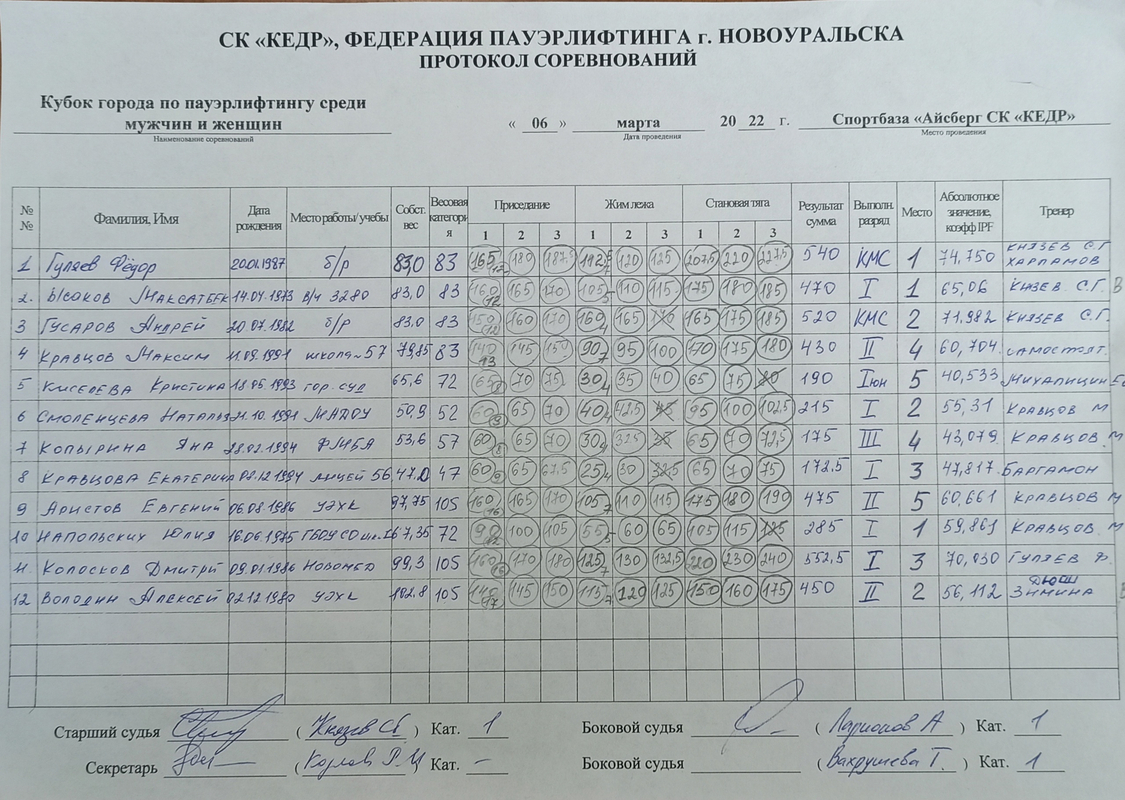 СК «КЕДР», ФЕДЕРАЦИЯ ПАУЭРЛИФТИНГА г. НОВОУРАЛЬСКА
ПРОТОКОЛ СОРЕВНОВАНИЙ
Кубок города по пауэрлифтингу среди
мужчин и женщин
Наименование соревнований
« 06 » марта 20 22 г.
Дата проведения
Спортбаза «Айсберг СК «КЕДР»
Место проведения
№ № Фамилия, Имя Дата рождения Место работы/учебы Собст. вес Весовая категори я Приседание Жим лежа Становая тяга Результат сумма Выполн. разряд Место Абсолютное значение, коэфф IPF Тренер
1 2 3 1 2 3 1 2 3
1 Гуляев Фёдор 20.01.1987 б/р 83,0 83 165 180 187,5 112,5 120 125 207,5 220 227,5 540 КМС 1 74,750 КНЯЗЕВ С.Г. ХАРЛАМОВ
2. Ысаков Максатбек 14.04.1973 в/ч 3280 83,0 83 160 165 170 105 110 115 175 180 185 470 I 1 65,06 С.Г.
3 Гусаров Андрей 20 07.1982 б/р 83.0 83 150 160 170 160 165 170 165 175 185 520 КМС 2 71,982 Князев С.Г.
4 Кравцов Максим 11.09.1991 школа 57 79,85 83 140 145 150 90 95 100 170 175 180 430 II 4 60,704 самостоят.
5 Киселева Кристина 18.05 1993 гор. суд 65,6 72 65 70 75 30 35 40 65 75 80 190 Iюн 5 40,533
6 Смоленцева Наталья 21.10.1991 МАДОУ 50,9 52 60 65 70 40 42,5 45 95 100 102,5 215 I 2 55,31 Кравцов М
7 Копырина Яна 28.02.1994 ФМБА 53,6 57 60 65 70 30 32,5 35 65 70 72,5 175 III 4 43,079 Кравцов М
8 Кравцова Екатерина 08.12.1994 лицей 56 47.0 47 60 65 67,5 25 30 32,5 65 70 75 172,5 I 3 47,817 Баргамон
9 Аристов Евгений 06.08.1986 УЭХК 97,75 105 160 165 170 105 110 115 175 180 190 475 II 5 60,661 Кравцов М
10 Напольских Юлия 16.06.1975 ГБОУ СО 67,35 72 90 100 105 55 60 65 105 115 125 285 I 1 59,861 Кравцов. М
11. Колосков Дмитрий 09.01.1986 Новомед 99,3 105 160 170 180 125 130 132,5 220 230 240 552,5 I 3 70,030 Гуляев Ф.
12 Володин Алексей 02.12.1980 УЭХК 102.8 105 145 150 115 120 125 150 160 175 450 II 2 56,112 ДЮСШ Зимина
Старший судья ( Князев СГ ) Кат. 1 Боковой судья ( Ларионов А ) Кат. 1
Секретарь Кат. – Боковой судья ( Вахрушева Т. ) Кат. 1